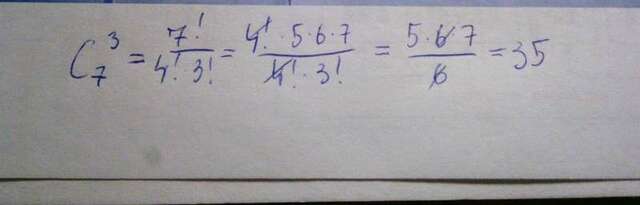 C₇³ = 7!/(4!·3!) = (4!·5·6·7)/(4!·3!) = (5·6·7)/6 = 35